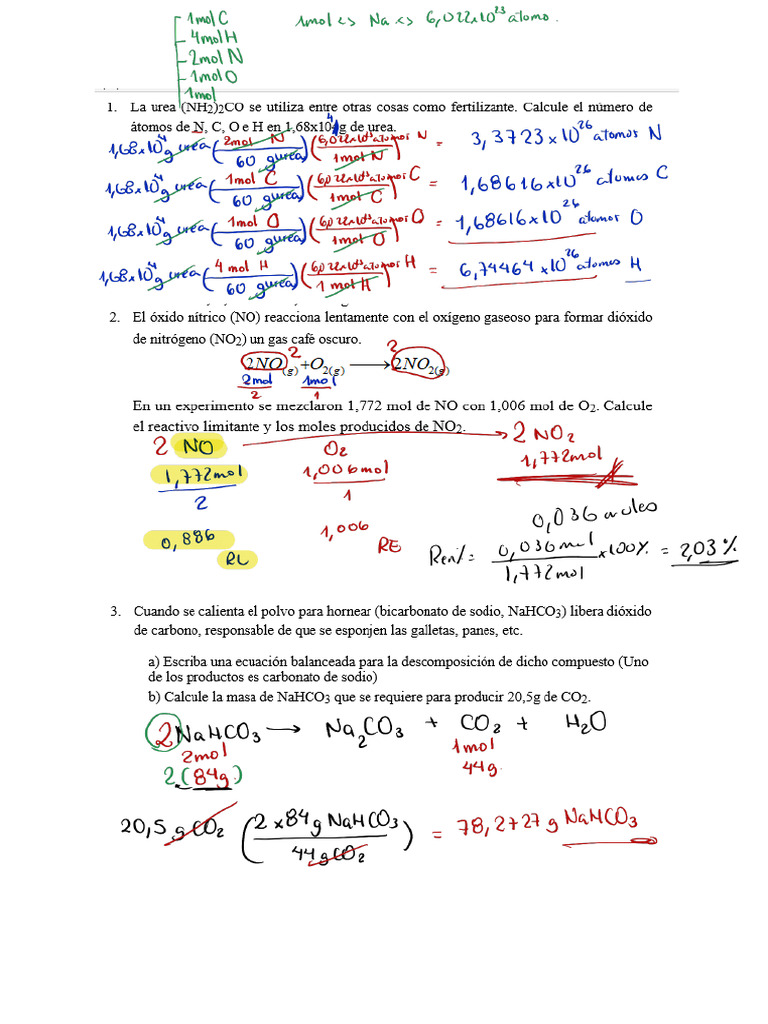 1mol C
4mol H
2mol N
1mol O
1mol
1mol <> Na <> 6,022x10²³ átomo.
1. La urea (NH2)2CO se utiliza entre otras cosas como fertilizante. Calcule el número de
átomos de N, C, O e H en 1,68x10⁴g de urea.
1,68x10⁴g urea (2mol N / 60 gurea) (6,022x10²³átomos N / 1mol N) = 3,3723x10²⁶ atomos N
1,68x10⁴g urea (1mol C / 60 gurea) (6,022x10²³atomos C / 1mol C) = 1,68616x10²⁶ atomos C
1,68x10⁴g urea (1mol O / 60 gurea) (6,022x10²³atomos O / 1mol O) = 1,68616x10²⁶ atomos O
1,68x10⁴g urea (4 mol H / 60 gurea) (6,022x10²³atomos H / 1 mol H) = 6,74464x10²⁶ atomos H
2. El óxido nítrico (NO) reacciona lentamente con el oxígeno gaseoso para formar dióxido
de nitrógeno (NO2) un gas café oscuro.
2 2
2NO(g) +O2(g) ⟶ 2NO2(g)
2mol 1mol
2 1
En un experimento se mezclaron 1,772 mol de NO con 1,006 mol de O2. Calcule
el reactivo limitante y los moles producidos de NO2.
2 NO O2 → 2 NO2
1,772mol 1,006mol 1,772mol
2 1
0,036 moles
0,886 1,006
RL RE
Ren%= 0,036mol / 1,772mol x100% = 2,03%
3. Cuando se calienta el polvo para hornear (bicarbonato de sodio, NaHCO3) libera dióxido
de carbono, responsable de que se esponjen las galletas, panes, etc.
a) Escriba una ecuación balanceada para la descomposición de dicho compuesto (Uno
de los productos es carbonato de sodio)
b) Calcule la masa de NaHCO3 que se requiere para producir 20,5g de CO2.
2NaHCO3 → Na2CO3 + CO2 + H2O
2mol 1mol
2(84g) 44g.
20,5 gCO2 (2x84g NaHCO3 / 44gCO2) = 78,2727 g NaHCO3